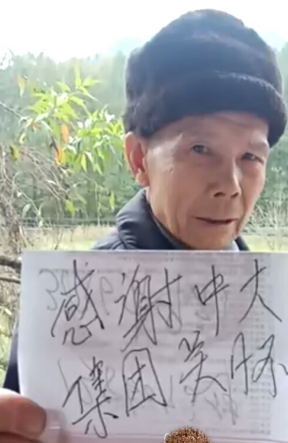 感谢中大
集团关怀